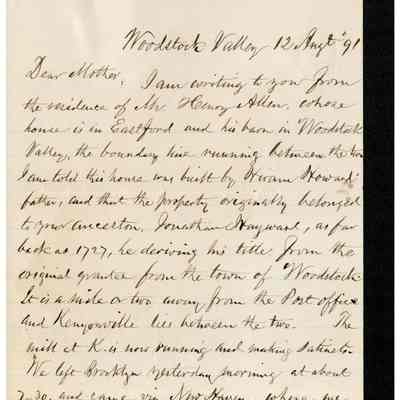 Woodstock Valley 12 Augt '91
Dear Mother, I am writing to you from
the residence of Mr Henry Allen, whose
house is in Eastford and his barn in Woodstock
Valley, the boundary line running between the two
I am told this house was built by Hiram Howard
father, and that the property originally belonged
to your ancestor, Jonathan Hayward, as far
back as 1727, he deriving his title from the
original grantee from the town of Woodstock
It is a mile or two away from the Post office
and Kenyonville lies between the two. The
mill at K. is now running and making
We left Brooklyn yesterday morning at about
7.30, and came via New Haven, where we